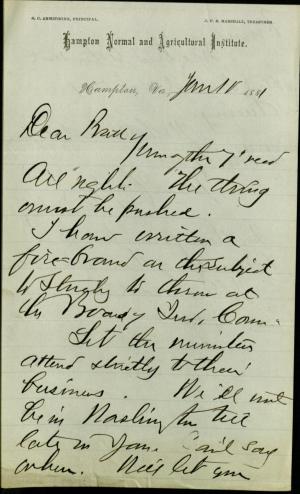 S. C. ARMSTRONG, PRINCIPAL. J. F. B. MARSHALL, TREASURER.
Hampton Normal and Agricultural Institute.
Hampton, Va. Jan 10 1881
Dear Pratt
Yours of the 7" recd
All right. The thing
must be pushed.
I have written a
fire-brand on the subject
to to throw at
the Board of Ind. Com.
Let the ministers
attend strictly to their
business. We'll not
be in Washington till
late in Jan. can't say
when. We'll let you